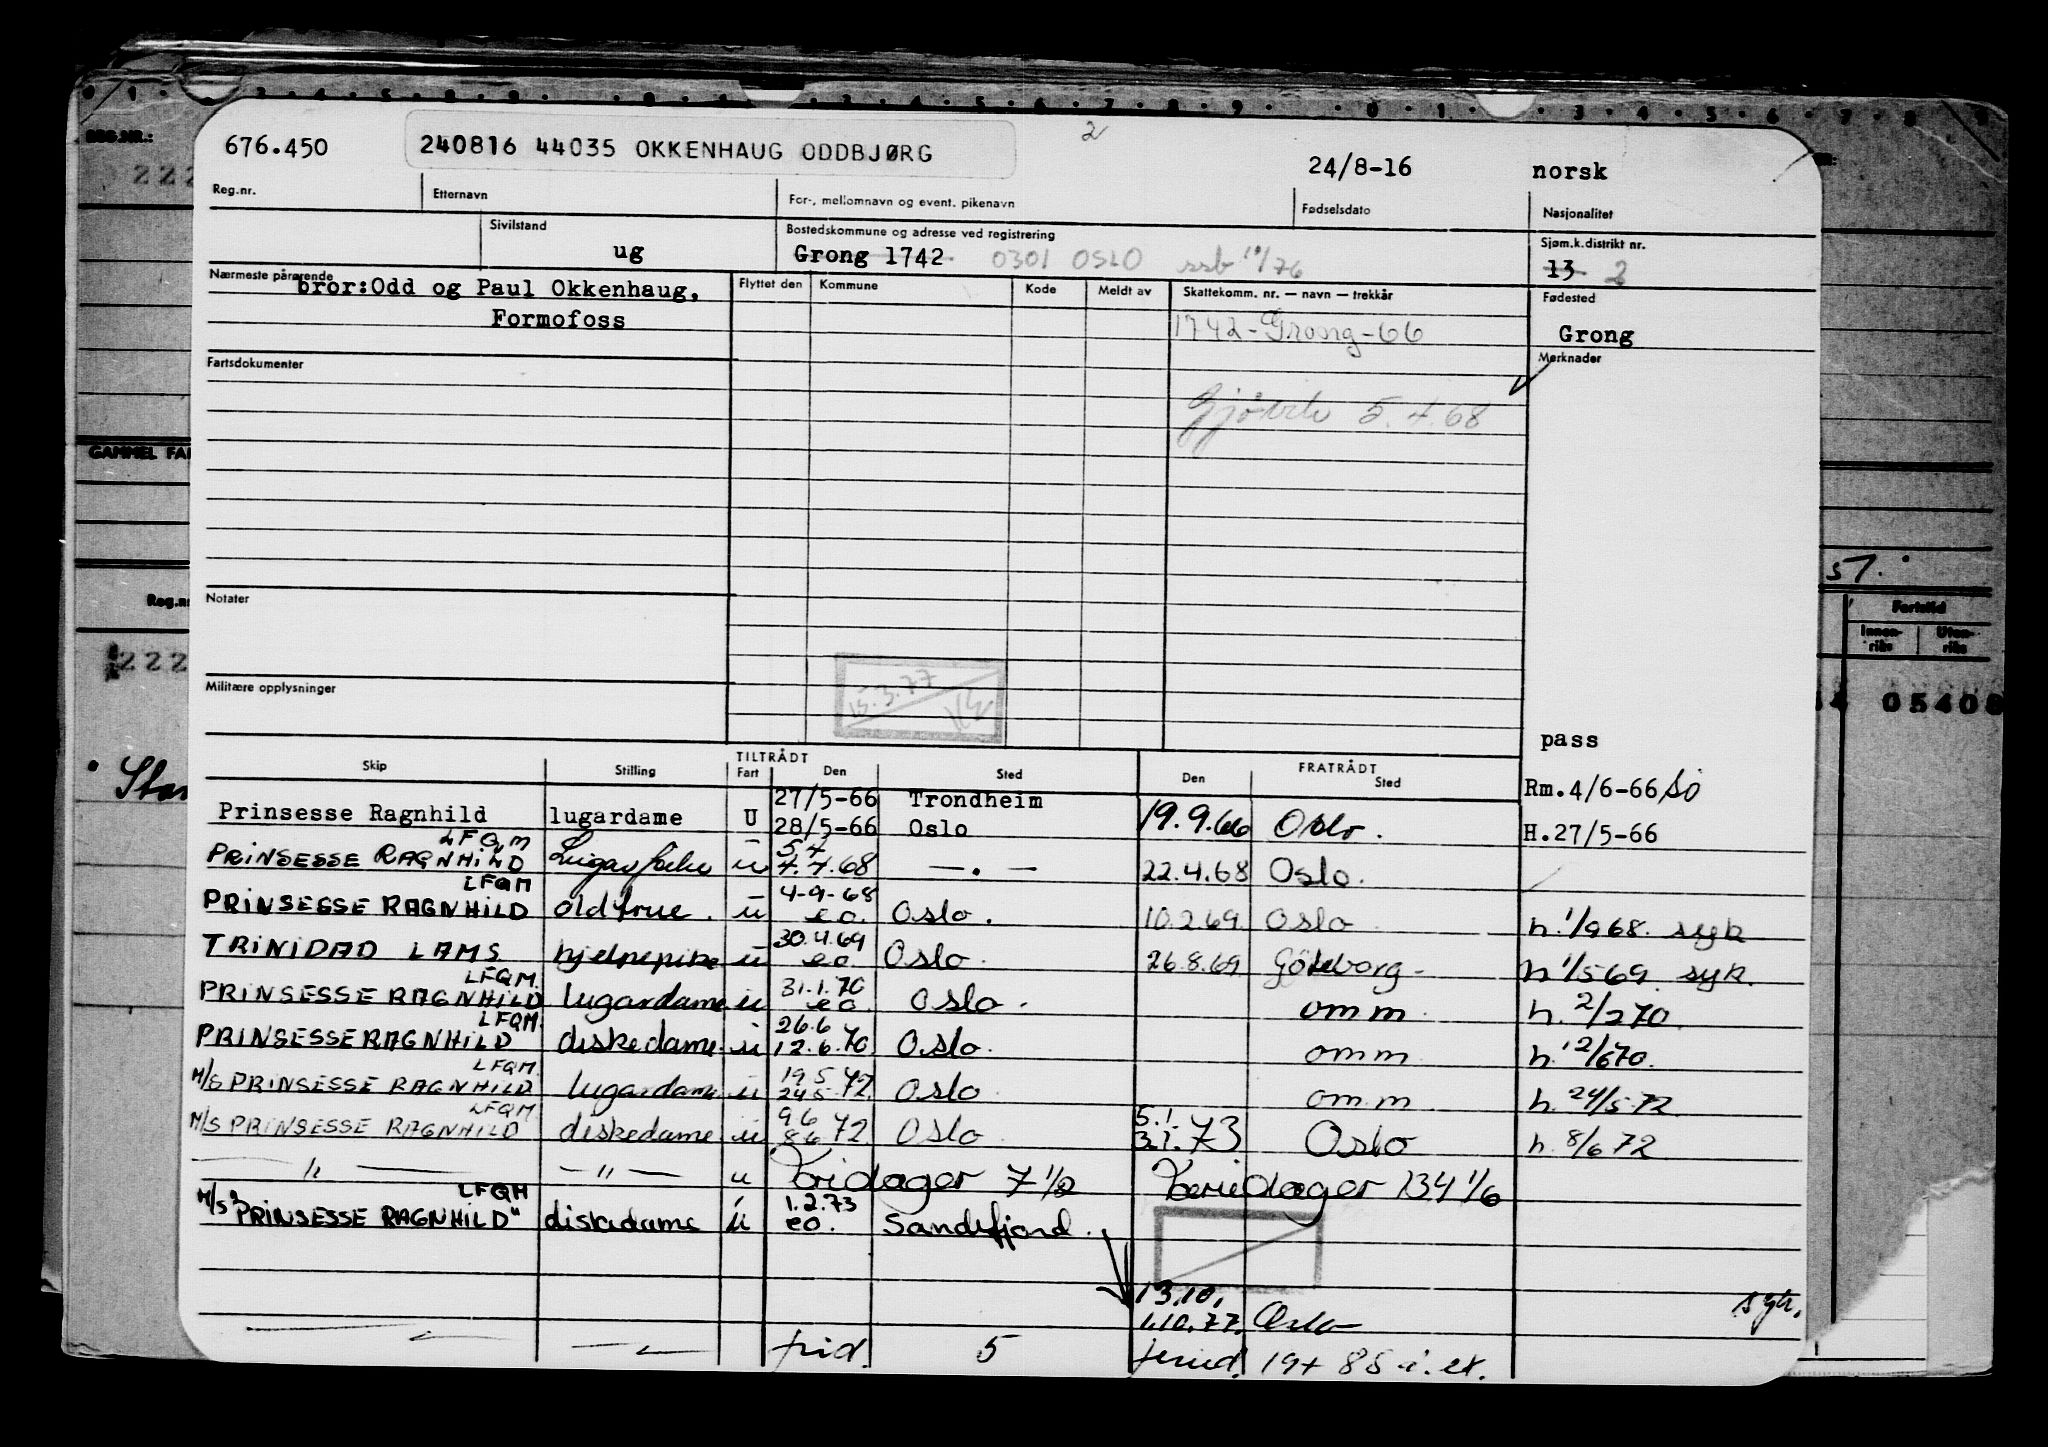 676.450 240816 44035 OKKENHAUG ODDBJØRG 2 24/8-16 norsk
Reg.nr. Etternavn For-, mellomnavn og event. pikenavn Fødselsdato Nasjonalitet
Sivilstand Bostedskommune og adresse ved registrering Sjøm.k.distrikt nr.
ug Grong 1742 0301 OSLO ssb 10/76 13 2
Nærmeste pårørende Flyttet den Kommune Kode Meldt av Skattekomm. nr. — navn — trekkår Fødested
bror:Odd og Paul Okkenhaug,
Formofoss 1742-Grong-66 Grong
Fartsdokumenter Merknader
Gjøvik 5.4.68
GAMMEL
Notater
Reg.nr
Fartstid
Innen-riks Uten-riks
222
Militære opplysninger
15.3.77
05408
pass
TILTRÅDT FRATRÅDT
Skip Stilling Fart Den Sted Den Sted
Rm.4/6-66
Prinsesse Ragnhild lugardame U 27/5-66 Trondheim 19.9.66 Oslo.
28/5-66 Oslo H.27/5-66
LFQM
PRINSESSE RAGNHILD u 5.4 4.4.68 — . — 22.4.68 Oslo.
LFQM
PRINSESSE RAGNHILD oldfrue. u 4-9-68 eo. Oslo. 10.2.69. Oslo h. 1/9 68. syk
TRINIDAD LAMS hjelpepike u 30.4.69 eo Oslo. 26.8.69 Göteborg - h 1/5 69. syk.
LFQM.
PRINSESSE RAGNHILD lugardame u 31.1.70 eo. Oslo. omm h. 2/2 70.
LFQM.
PRINSESSE RAGNHILD diskedame. u 26.6 12.6.70. Oslo. omm h. 12/6 70.
LFQM.
M/S PRINSESSE RAGNHILD lugardame u 19.5 24.5 72. Oslo omm. h. 24/5 72
LFQM
M/S PRINSESSE RAGNHILD diskedame u 9.6 8.6 72. Oslo 5.1. 3.1. 73 Oslo h. 8/6 72
— " — — " — u Fridager 7 1/2 Feriedager 134 1/6
LFQM
M/S "PRINSESSE RAGNHILD" diskedame u 1.2.73 eo. Sandefjord.
13.10.
1.10.77. Oslo
frid. 5 feried. 19 + 85 i. et.